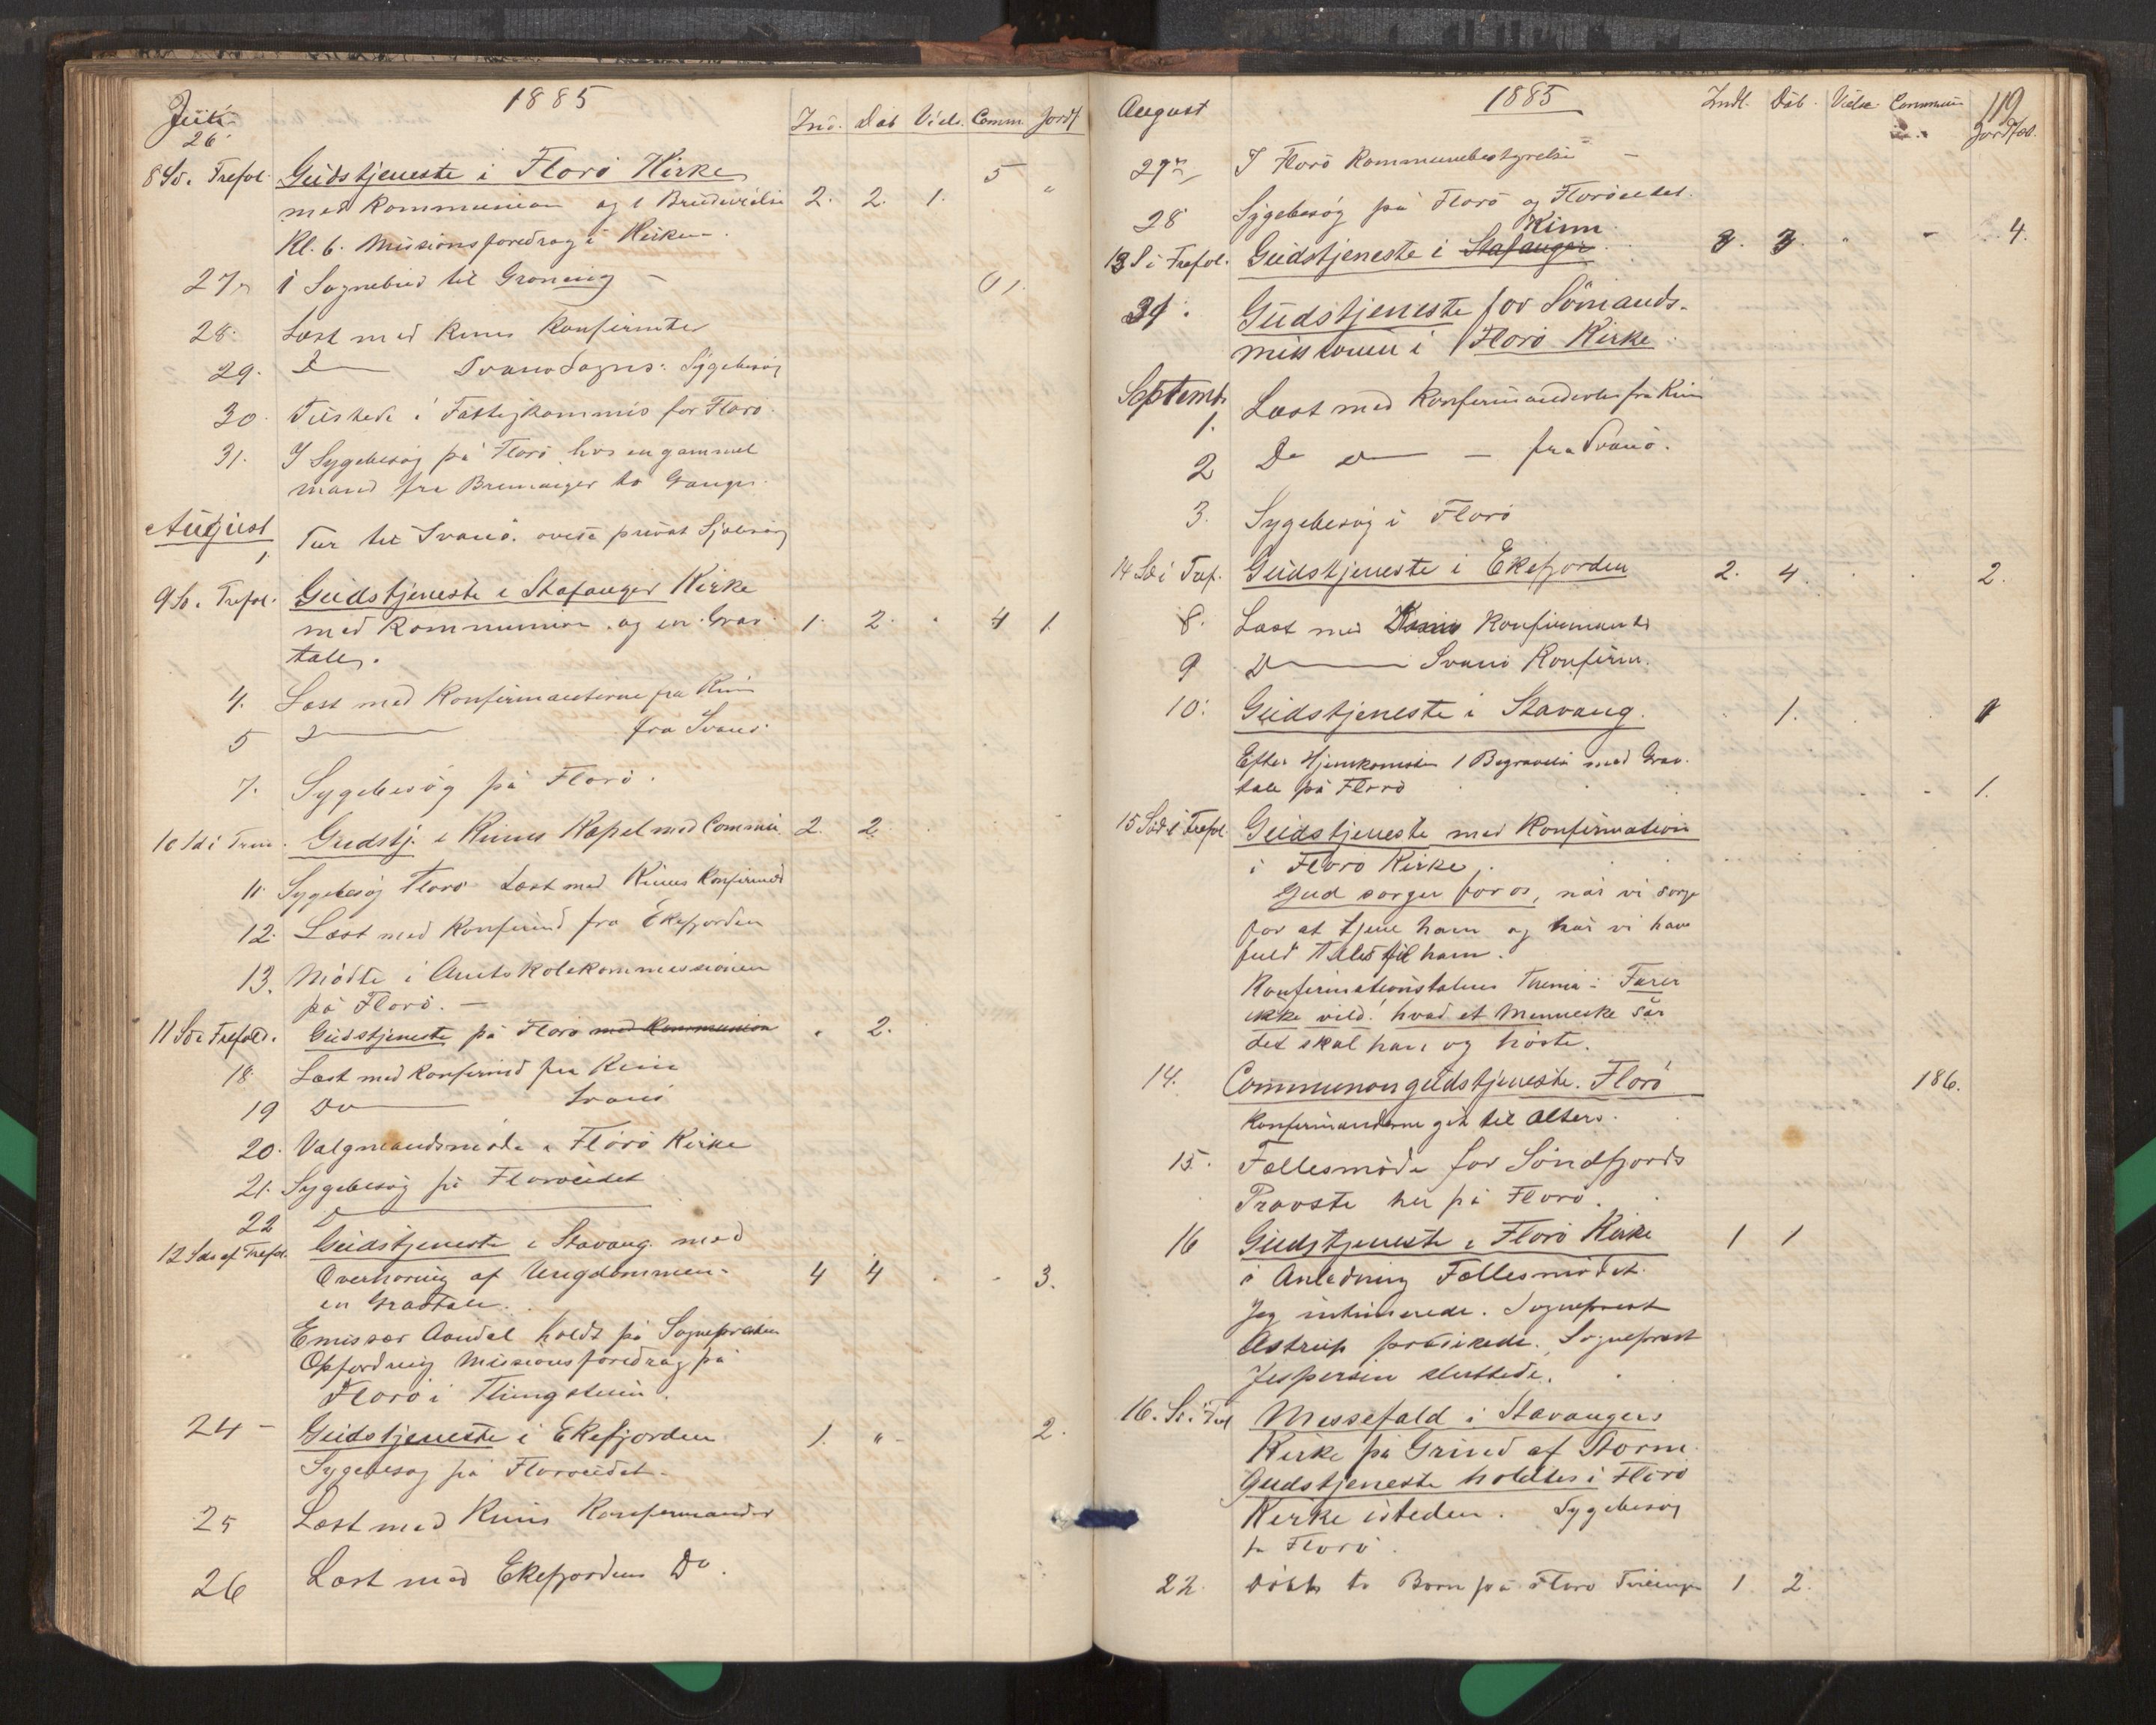 Juli 1885 Ind. Dab Viels. Comm Jordf
26
8 Sö. Trefol. Gudstjeneste i Florö Kirke 5
med Kommunion og 1 Brudevielse 2. 2. 1. "
Kl. 6. Missionsforedrag i Kirken.
27 1 Sognebud til Groning
28. Læst med Kinns Konfirmter
29. Do Svanö Sogns. Sygebesög
30. Tilstede i Fattigkommis for Florö
31. I Sygebesög på Florö hos en gammel
mand fra Bremanger to Gange.
August
1 Tur til Svanö. privat Sjælesorg
9 Sö. Trefol. Gudstjeneste i Stafanger Kirke
med Kommunion og en Grav 1. 2. . 4 1.
tale.
4. Læst med Konfirmanterne fra Kin
5 D fra Svanö
7. Sygebesög på Florö.
10 Sd i Tref. Gudstj. i Kinns Kapel med Commu 2. 2.
11 Sygebesög Florö Læst med Kinns Konfirmd
12. Læst med Konfirmd fra Ekefjorden
13. Mödte i Amtskolekommissionen
på Florö. —
11 Sö. Trefold. Gudstjeneste på Florö med Kommunion . 2.
18 Læst med Konfirmd fra Kin
19 Do Svanö
20. Valgmandsmöde i Florö Kirke
21. Sygebesög på Floröeidet
22 D
12 Sds af Trefol. Gudstjeneste i Stavang med
Overhöring af Ungdommen. 4 4 . . 3.
en Gravtale.
Emissær Aandal holdt på Sognepræsten
Opfordring Missionsforedrag på
Florö i Thingstuen.
24 – Gudstjeneste i Ekefjorden 1. " 2.
Sygebesög på Floröeidet.
25 Læst med Kinns Konfirmander
26 Læst med Ekefjordens Do.
August 1885 Indl. Dåb. Vielse. Commun 119
Jordfæst.
27 I Florö Kommunebestyrelse —
28 Sygebesög på Florö og Floröeidet.
Kinn
13 S i Trefol. Gudstjeneste i Stafanger 3. 3. " - 4.
31. Gudstjeneste for Sömands-
missionen i Florö Kirke.
Septemb.
1. Læst med Konfirmanderne fra Kin
2 Do Do — fra Svanö.
3. Sygebesög i Florö
14 Sö i Tref. Gudstjeneste i Ekefjorden 2. 4. . . 2.
8. Læst med Kinns Konfirmants
9 D Svanö Konfirm.
10. Gudstjeneste i Stavang. 1. 1
Efter Hjemkomsten 1 Begravelse med Grav-
tale på Florö 1.
15 Sönd i Trefol. Gudstjeneste med Konfirmation
i Florö Kirke.
Gud sorger for os, når vi sorge
for at tjene ham og når vi have
fuld Tillid til ham.
Konfirmationstalens Thema: Farer
ikke vild! hvad et Menneske sår
det skal han og höste.
14. Communongudstjeneste. Florö 186.
Konfirmanderne gik til Alters.
15. Fællesmöde for Söndfjords
Provsti her på Florö.
16 Gudstjeneste i Florö Kirke 1 1
i Anledning Fællesmödet.
Jeg intimerede. Sognepræst
Astrup prædikede. Sognepræst
Jespersen sluttede.
16. Sö. i Tref Messefald i Stavangers
Kirke på Grund af Storm.
Gudstjeneste holdtes i Florö
Kirke isteden. Sygebesög
på Florö.
22. Döbt to Börn på Florö Tvillinger 1 2